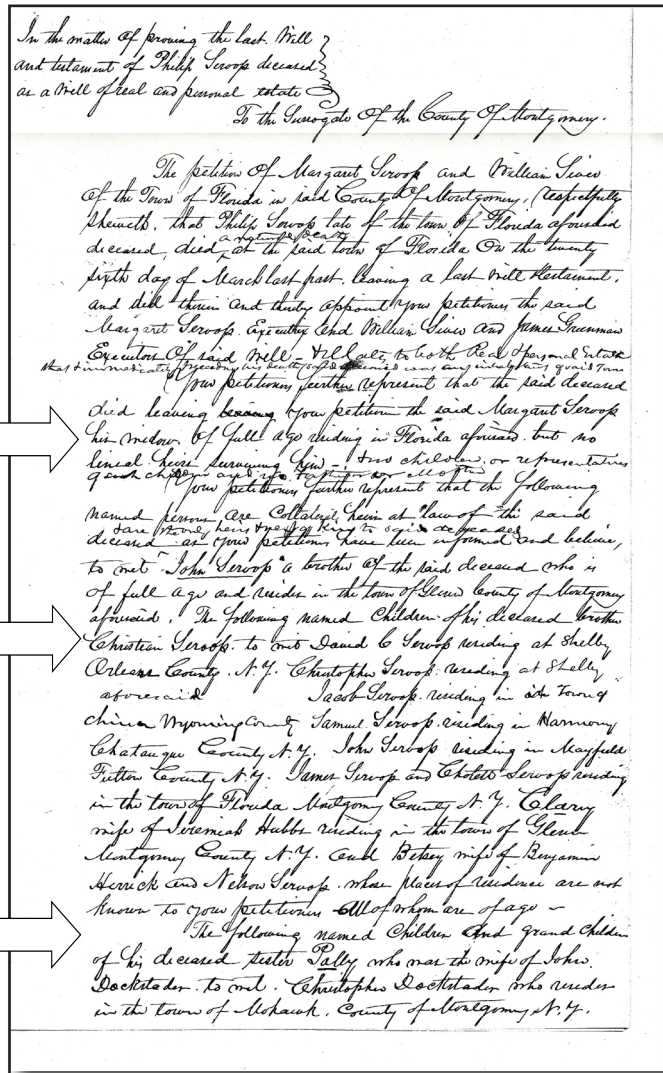 In the matter of proving the last Will
and testament of Philip Servoss deceased
as a Will of real and personal estate
To the Surrogate Of the County Of Montgomery.
The petition Of Margaret Servoss and William Siver
Of the Town of Florida in said County Of Montgomery, respectfully
sheweth, that Philip Servoss late of the town of Florida aforesaid
a natural death
deceased, died at the said town of Florida On the twenty
sixth day of March last past, leaving a last Will & testament,
and did therein and thereby appoint your petitioners the said
Margaret Servoss Executrix and William Siver and James Greenman
Executors Of said Will - & relates to both Real & personal Estate
that immediately preceding his death said deceased was an inhabitant of said Town
Your petitioners further represent that the said deceased
died leaving your petitioner the said Margaret Servoss
his widow, Of full age residing in Florida aforesaid, but no
lineal heirs surviving him - & no children, or representatives
of such children and no father or Mother
Your petitioners further represent that the following
named persons are Collateral heirs at law of the said
& are the only heirs & next of Kin to said deceased
deceased as your petitioners have been informed and believe,
to wit John Servoss a brother of the said deceased who is
of full age and resides in the town of Glenn County of Montgomery
aforesaid. The following named Children of his deceased brother
Christian Servoss. to wit David C Servoss residing at Shelby
Orleans County. N.Y. Christopher Servoss. residing at Shelby
aforesaid Jacob Servoss. residing in Town of
China Wyoming County Samuel Servoss. residing in Harmony
Chatauque County N.Y. John Servoss residing in Mayfield
Fulton County N.Y. James Servoss and Servoss residing
in the town of Florida Montgomy County N.Y. Clary
wife of Jeremiah Hubbs residing in the town of Glenn
Montgomery County N.Y. and Betsey wife of Benjamin
Herrick and Nelson Servoss. whose places of residence are not
known to your petitioners All of whom are of age -
The following named Children and grand Children
of his deceased sister Polly who was the wife of John
Dockstader. to wit. Christopher Dockstader who resides
in the town of Mohawk. County of Montgomy N.Y.